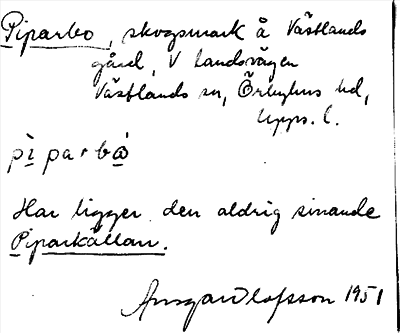 Piparbo, skogsmark å Västlands
gård, V landsvägen
Västlands sn, Örbyhus hd,
Upps. l.
pìparbò
Här ligger den aldrig sinande
Piparkällan.
Ansgar Olofsson 1951